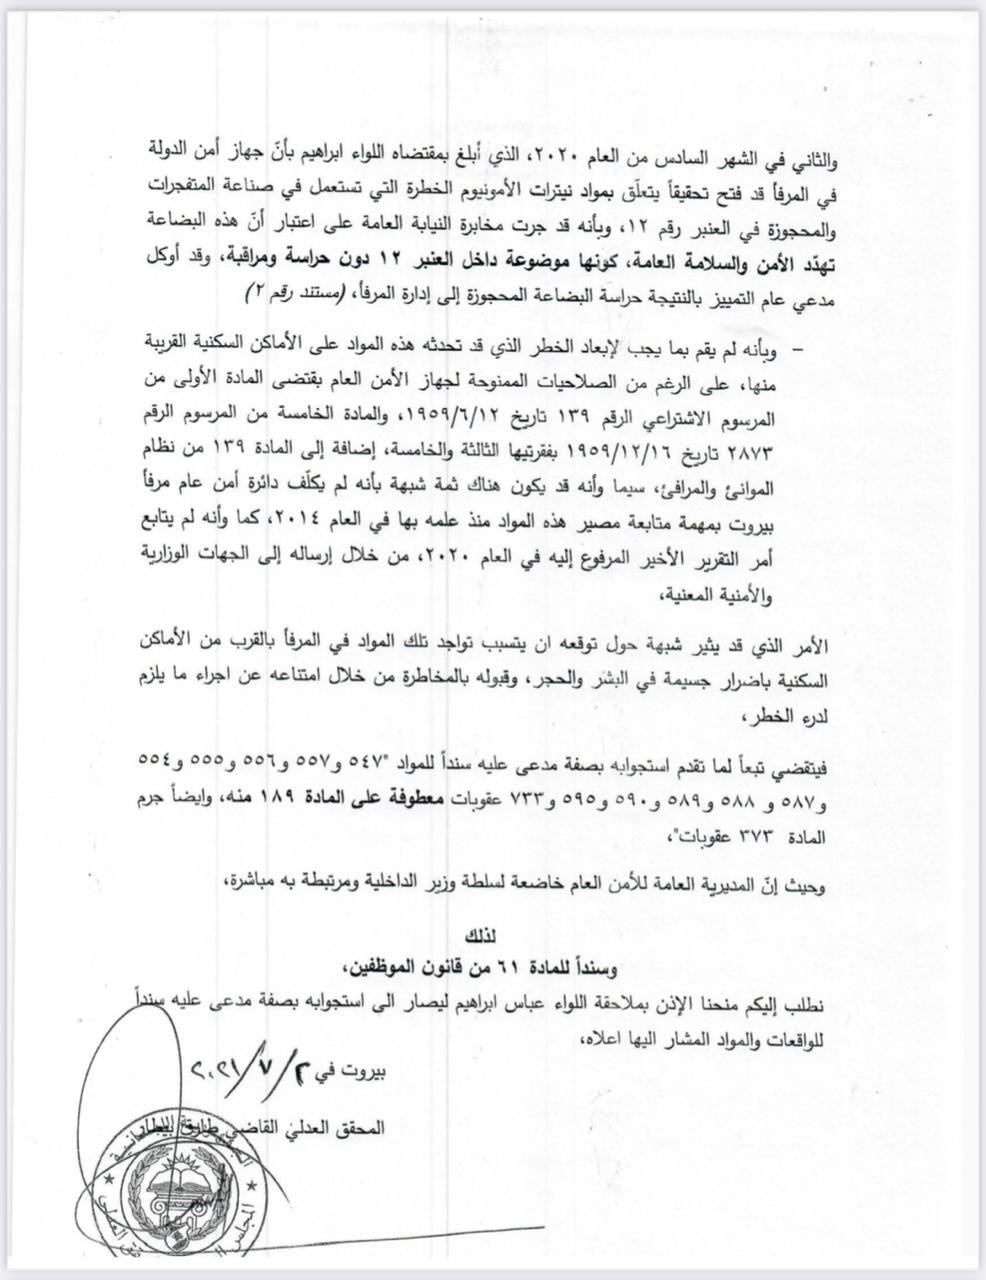 والثاني في الشهر السادس من العام ٢٠٢٠، الذي أبلغ بمقتضاه اللواء ابراهيم بأنّ جهاز أمن الدولة
في المرفأ قد فتح تحقيقاً يتعلّق بمواد نيترات الأمونيوم الخطرة التي تستعمل في صناعة المتفجرات
والمحجوزة في العنبر رقم ١٢، وبأنه قد جرت مخابرة النيابة العامة على اعتبار أنّ هذه البضاعة
تهدّد الأمن والسلامة العامة، كونها موضوعة داخل العنبر ١٢ دون حراسة ومراقبة، وقد أوكل
مدعي عام التمييز بالنتيجة حراسة البضاعة المحجوزة إلى إدارة المرفأ، (مستند رقم ٢)
– وبأنه لم يقم بما يجب لإبعاد الخطر الذي قد تحدثه هذه المواد على الأماكن السكنية القريبة
منها، على الرغم من الصلاحيات الممنوحة لجهاز الأمن العام بقتضى المادة الأولى من
المرسوم الاشتراعي الرقم ١٣٩ تاريخ ١٩٥٩/٦/١٢، والمادة الخامسة من المرسوم الرقم
٢٨٧٣ تاريخ ١٩٥٩/١٢/١٦ بفقرتيها الثالثة والخامسة، إضافة إلى المادة ١٣٩ من نظام
الموانئ والمرافئ، سيما وأنه قد يكون هناك ثمة شبهة بأنه لم يكلّف دائرة أمن عام مرفأ
بيروت بمهمة متابعة مصير هذه المواد منذ علمه بها في العام ٢٠١٤، كما وأنه لم يتابع
أمر التقرير الأخير المرفوع إليه في العام ٢٠٢٠، من خلال إرساله إلى الجهات الوزارية
والأمنية المعنية،
الأمر الذي قد يثير شبهة حول توقعه ان يتسبب تواجد تلك المواد في المرفأ بالقرب من الأماكن
السكنية باضرار جسيمة في البشر والحجر، وقبوله بالمخاطرة من خلال امتناعه عن اجراء ما يلزم
لدرء الخطر،
فيتقضي تبعاً لما تقدم استجوابه بصفة مدعى عليه سنداً للمواد "٥٤٧ و٥٥٧ و٥٥٦ و٥٥٥ و٥٥٤
و٥٨٧ و ٥٨٨ و٥٨٩ و٥٩٠ و٥٩٥ و٧٣٣ عقوبات معطوفة على المادة ١٨٩ منه، وايضاً جرم
المادة ٣٧٣ عقوبات"،
وحيث إنّ المديرية العامة للأمن العام خاضعة لسلطة وزير الداخلية ومرتبطة به مباشرة،
لذلك
وسنداً للمادة ٦١ من قانون الموظفين،
نطلب إليكم منحنا الإذن بملاحقة اللواء عباس ابراهيم ليصار الى استجوابه بصفة مدعى عليه سنداً
للواقعات والمواد المشار اليها اعلاه،
بيروت في ٢/٧/٢٠٢١
المحقق العدلي القاضي طارق بيطار